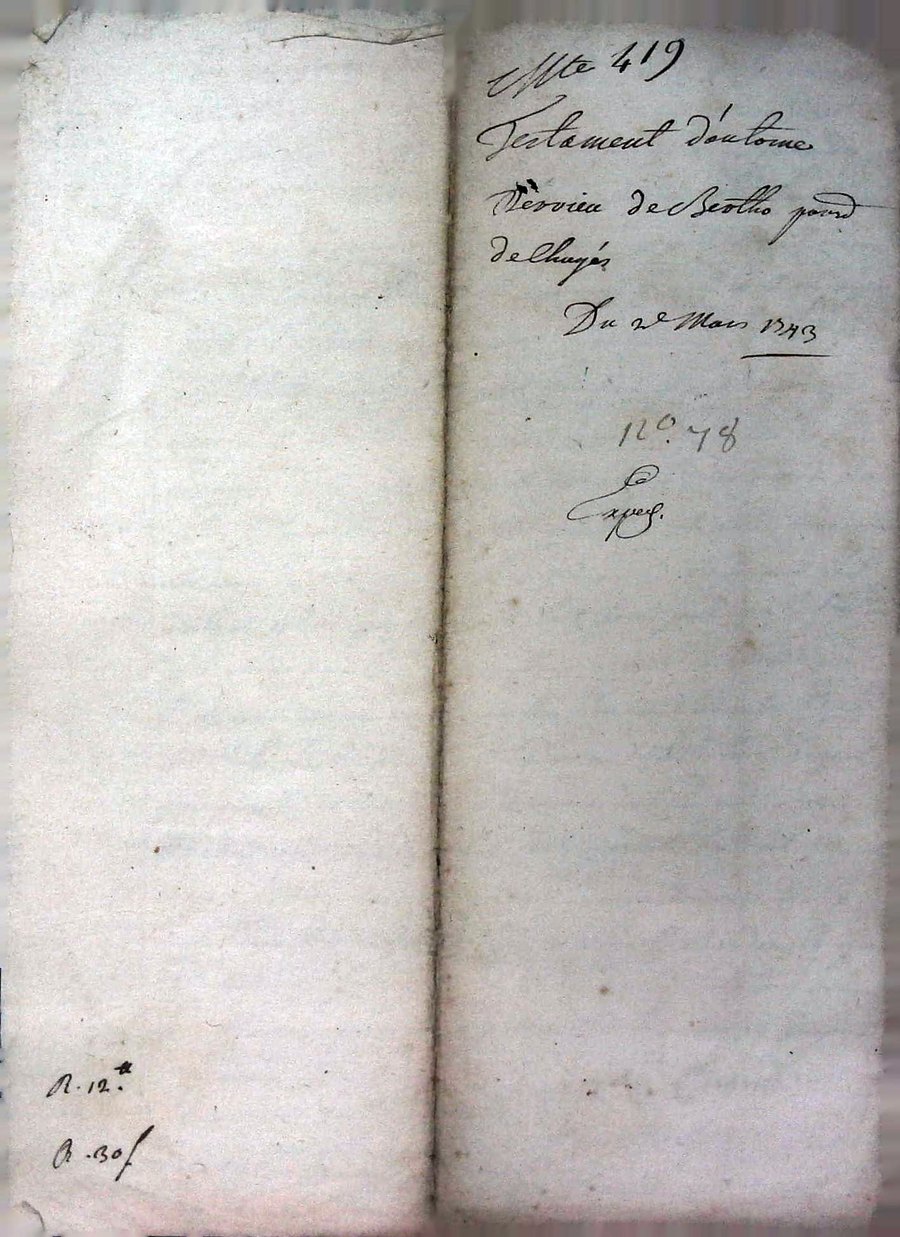 Cotte 419
Testament d'antoine
Servieu de Bertho pard
de Chuyés
Du 2e Mars 1743
No. 78
Exped.
R. 12.tt
R. 30 s